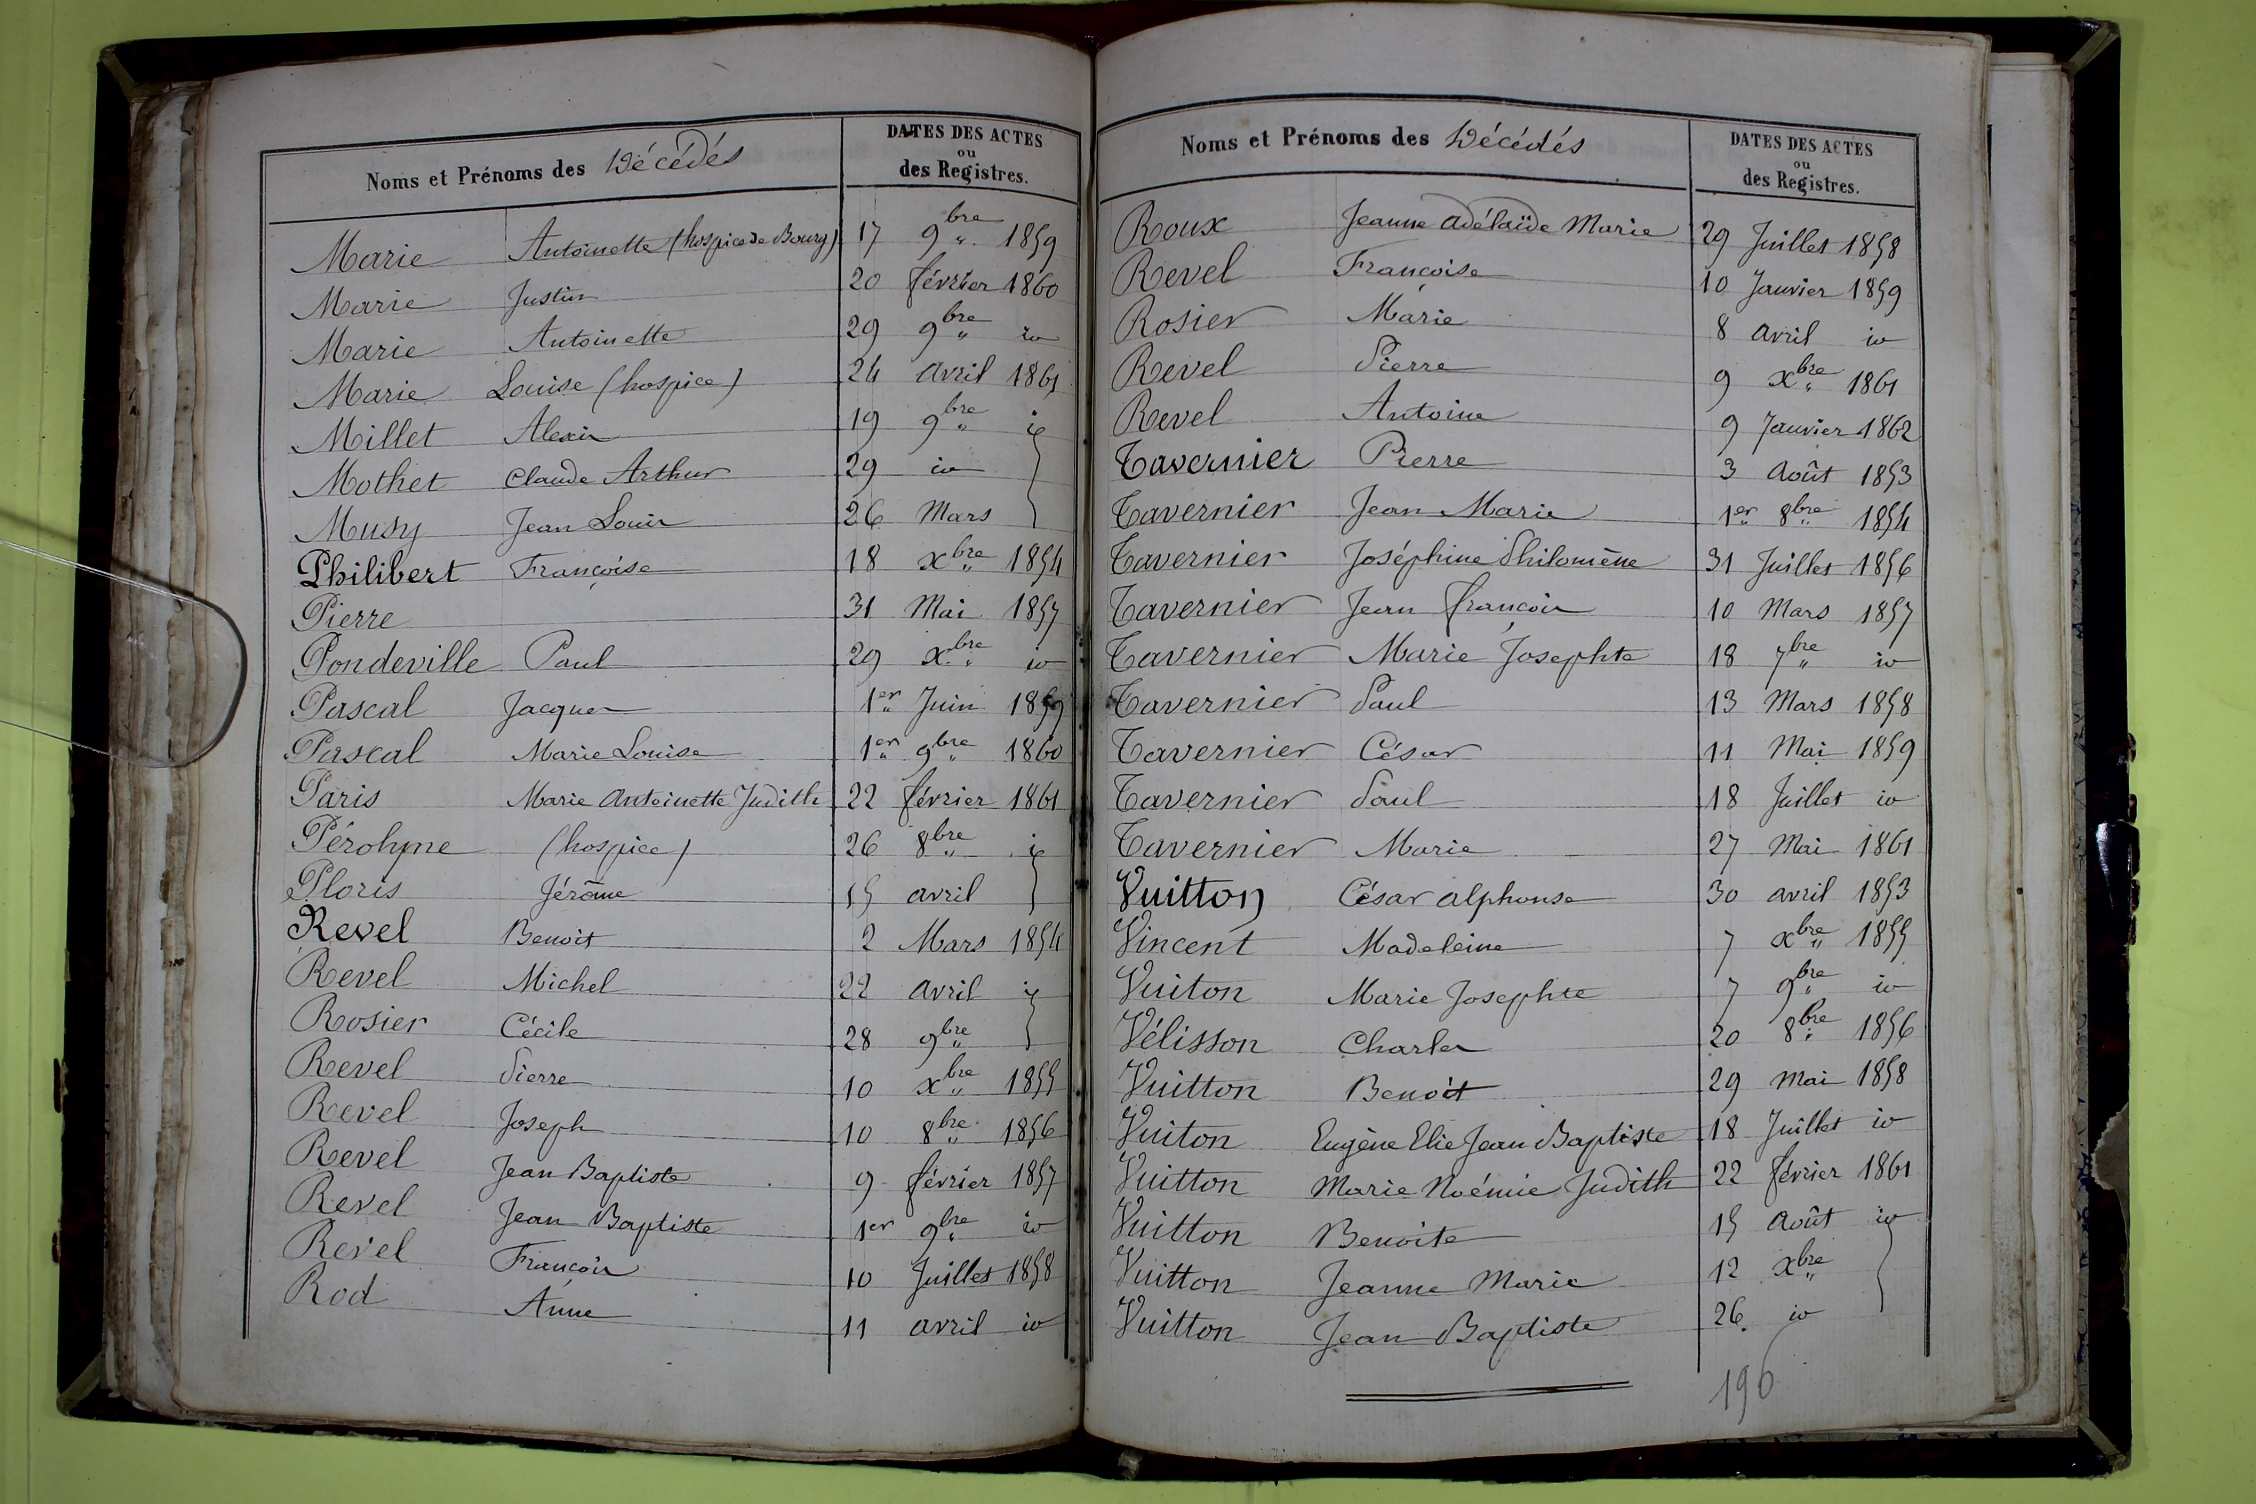 Noms et Prénoms des Décédés DATES DES ACTES
ou
des Registres.
Marie Antoinette (hospice de Bourg) 17 9bre 1859
Marie Justin 20 février 1860
Marie Antoinette 29 9bre id
Marie Louise (hospice) 24 avril 1861
Millet Alexis 19 9bre id
Mothet Claude Arthur 29 id
Musy Jean Louis 26 Mars
Philibert Françoise 18 xbre 1854
Pierre 31 Mai 1857
Pondeville Paul 29 xbre id
Pascal Jacques 1er Juin 1859
Pascal Marie Louise 1er 9bre 1860
Paris Marie Antoinette Judith 22 février 1861
Pérohyne (hospice) 26 8bre id
Ploris Jérôme 15 avril
Revel Benoit 2 Mars 1854
Revel Michel 22 avril id
Rosier Cécile 28 9bre
Revel Pierre 10 xbre 1855
Revel Joseph 10 8bre 1856
Revel Jean Baptiste 9 février 1857
Revel Jean Baptiste 1er 9bre id
Revel François 10 Juillet 1858
Rod Anne 11 avril id
Noms et Prénoms des Décédés DATES DES ACTES
ou
des Registres.
Roux Jeanne Adélaïde Marie 29 Juillet 1858
Revel Françoise 10 Janvier 1859
Rosier Marie 8 avril id
Revel Pierre 9 xbre 1861
Revel Antoine 9 Janvier 1862
Tavernier Pierre 3 Août 1853
Tavernier Jean Marie 1er 8bre 1854
Tavernier Joséphine Philomène 31 Juillet 1856
Tavernier Jean françois 10 Mars 1857
Tavernier Marie Josephte 18 7bre id
Tavernier Paul 13 Mars 1858
Tavernier César 11 Mai 1859
Tavernier Paul 18 Juillet id
Tavernier Marie 27 Mai 1861
Vuitton César alphonse 30 avril 1853
Vincent Madeleine 7 xbre 1855
Vuiton Marie Josephte 7 9bre id
Vélisson Charles 20 8bre 1856
Vuitton Benoit 29 mai 1858
Vuiton Eugène Elie Jean Baptiste 18 Juillet id
Vuitton Marie Noémie Judith 22 février 1861
Vuitton Benoite 15 Août id
Vuitton Jeanne Marie 12 xbre
Vuitton Jean Baptiste 26 id
196